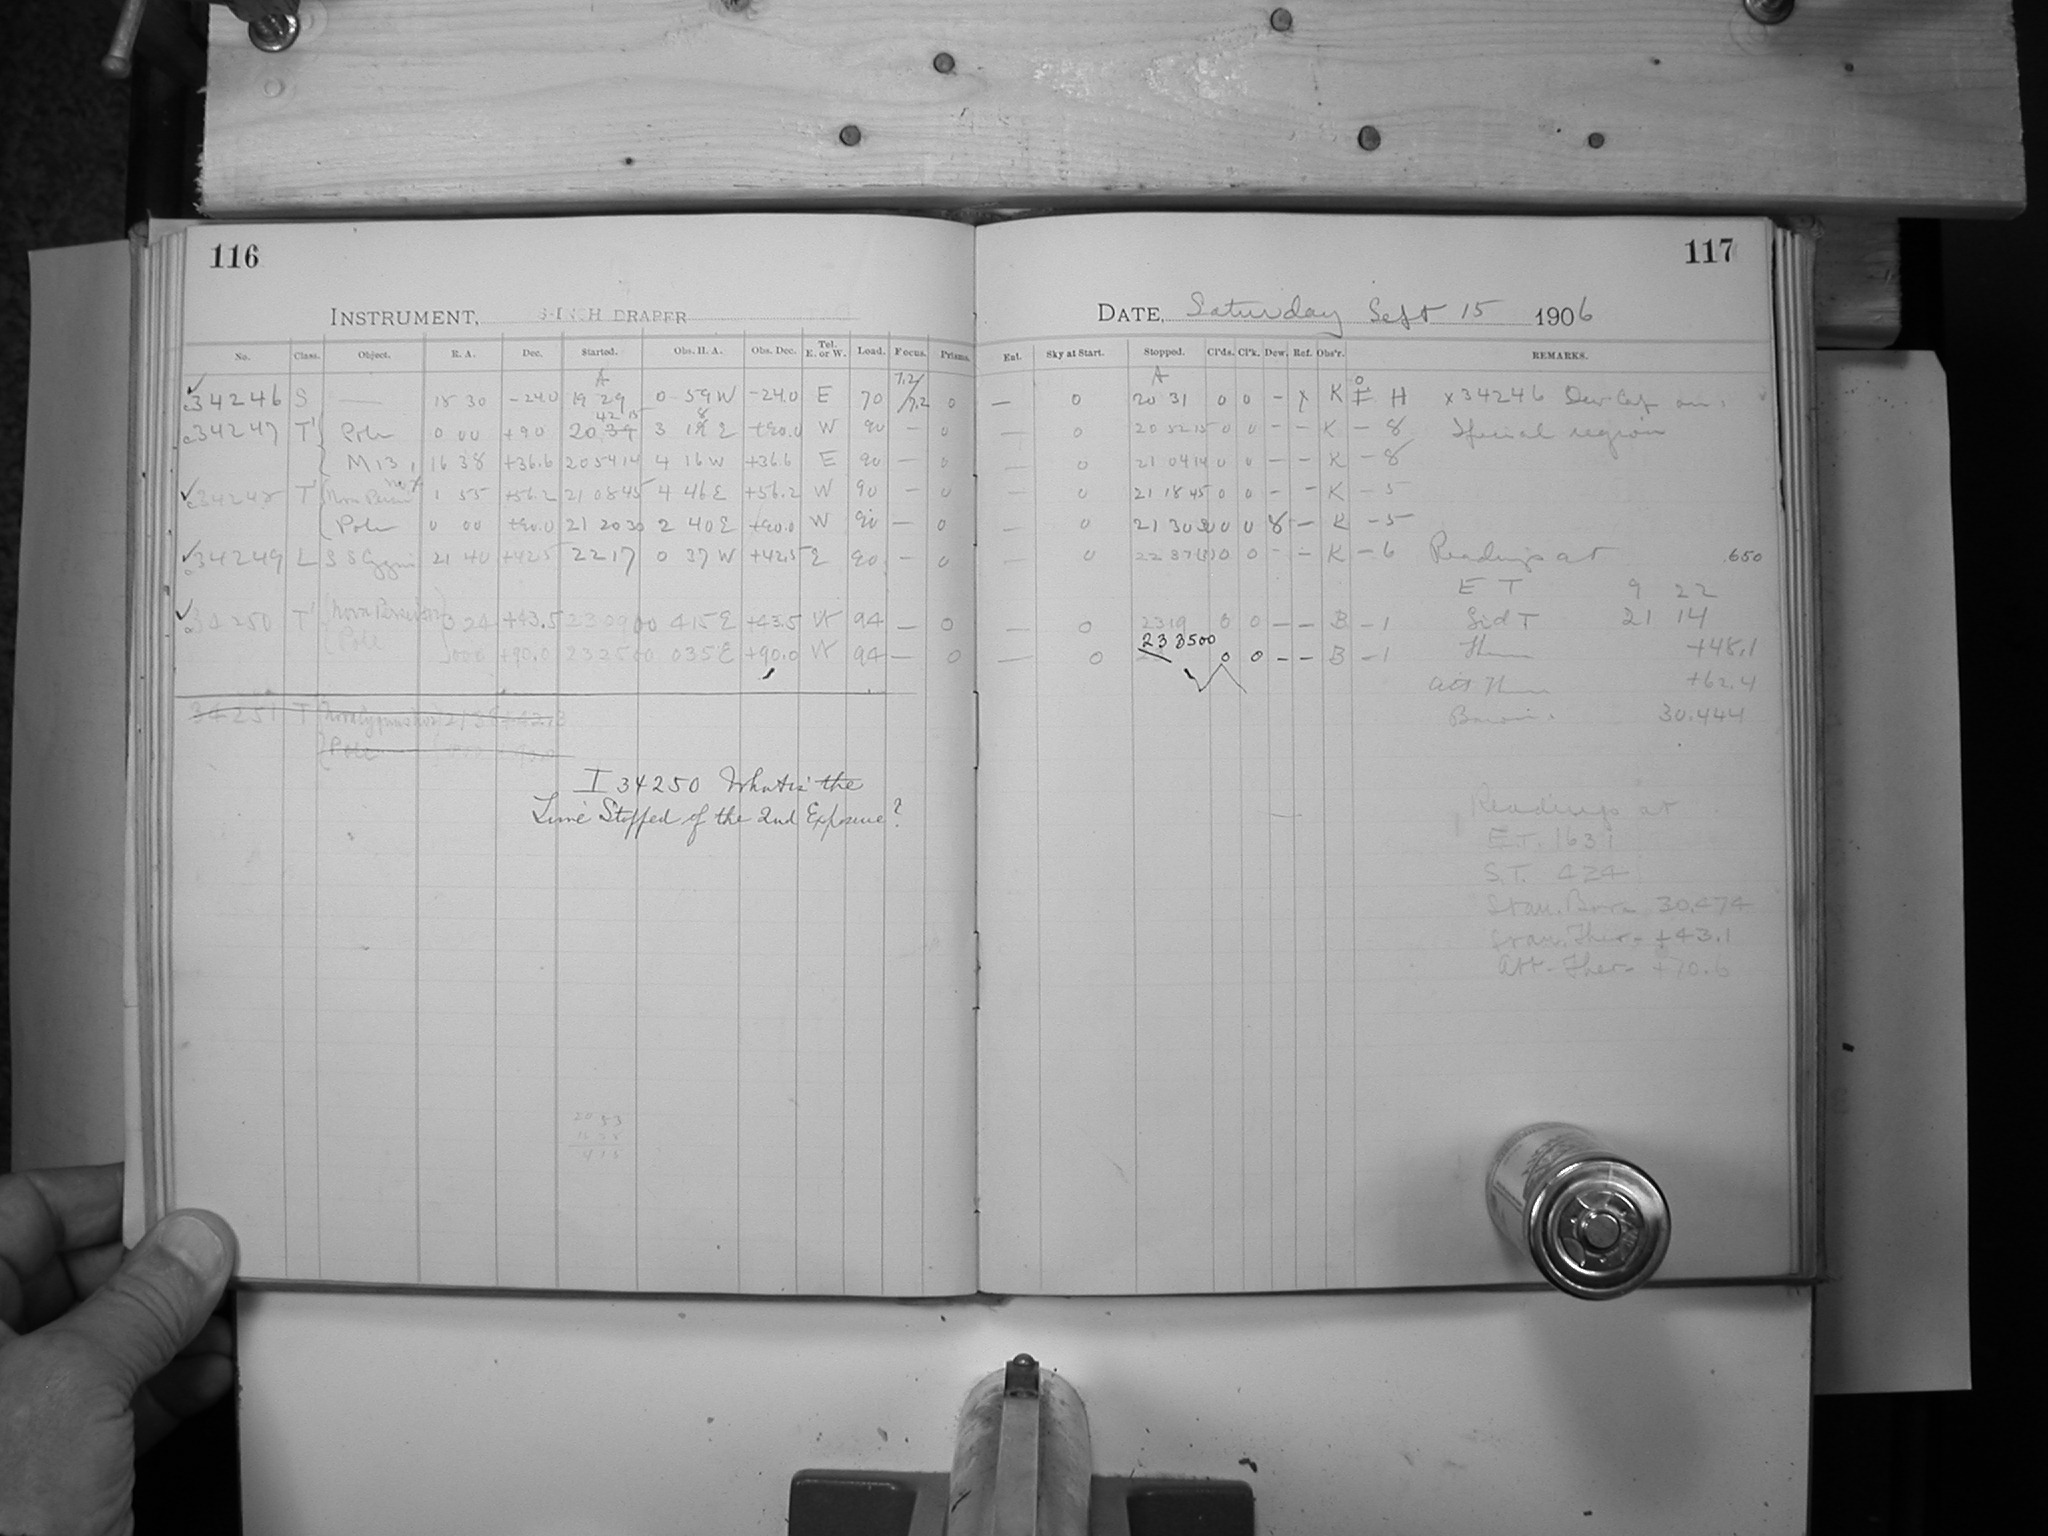 116
INSTRUMENT, 8-INCH DRAPER
No. Class. Object. R. A. Dec. Started. Obs. H. A. Obs. Dec. Tel. E. or W. Load. Focus. Prisms.
34246 S — 18 30 -24.0 A 19 29 0 59 W -24.0 E 70 7.2/7.2 0
34247 T' Pole 0 00 +90 20 39 42 15 3 8 E +90.0 W 90 — 0
M13, 16 38 +36.6 20 54 14 4 16 W +36.6 E 90 — 0
34248 T' 1 55 +56.2 21 08 45 4 46 E +56.2 W 90 — 0
Pole 0 00 +90.0 21 20 30 2 40 E +90.0 W 90 — 0
34249 L SS Cygni 21 40 +42.5 22 17 0 37 W +42.5 E 90 — 0
34250 T' Nova Persei 3 24 +43.5 23 09 00 4 15 E +43.5 W 94 — 0
Pole 000 +90.0 23 25 00 0 35 E +90.0 W 94 — 0
34251 T
Pole
I 34250 What is the
Time Stopped of the 2nd Exposure?
20 53
117
DATE, Saturday Sept 15 1906
Ent. Sky at Start. Stopped. Cl'ds. Cl'k. Dew. Ref. Obs'r. REMARKS.
— 0 A 20 31 0 0 - x K H x 34246 Dew Cap on.
— 0 20 52 15 0 0 - - K - 8 Special region
— 0 21 04 14 0 0 - - K - 8
— 0 21 18 45 0 0 - - K - 5
0 21 30 30 0 0 8 - K - 5
0 22 37 0 0 - - K - 6 Readings at .650
E T 9 22
— 0 23 19 0 0 - - B - 1 Sid T 21 14
23 35 00
— 0 0 0 - - B - 1 Ther +48.1
Att Ther +62.4
Barom. 30.444
Readings at
E.T. 16 31
S.T. 4 24
Stan. Bar. 30.474
Ther. +43.1
Att. Ther. +70.6